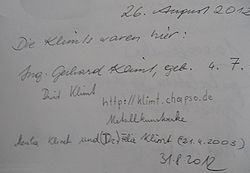 26. August 2012
Die Klimts waren hier:
Ing. Gerhard Klimt, geb. 4. 7.
Klimt http://klimt.chapso.de
Metallkunstwerke
Klimt und (D) Felix Klimt (21.4.2003)
31.8.2012